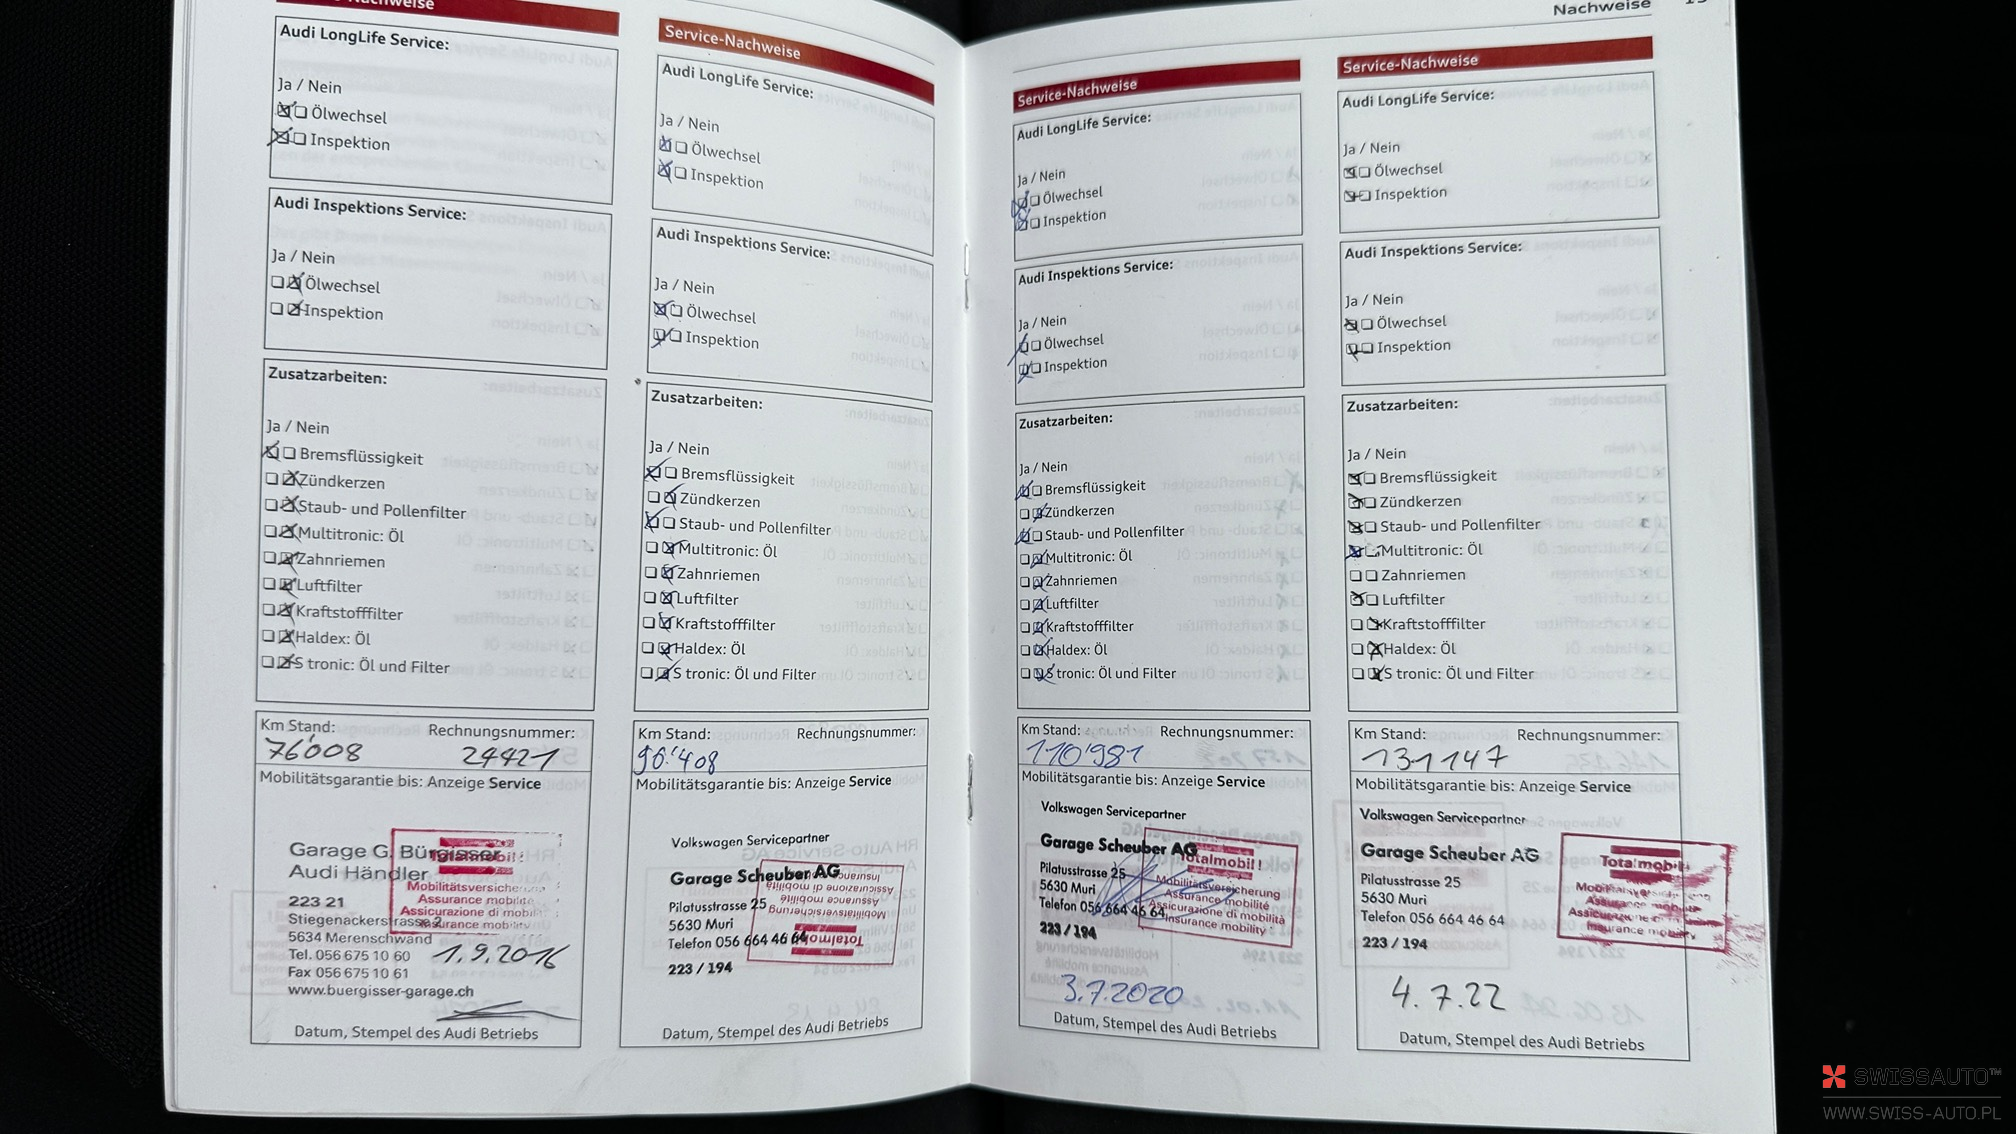 Nachweise
Audi LongLife Service:
Ja / Nein
Ölwechsel
Inspektion
Audi Inspektions Service:
Ja / Nein
Ölwechsel
Inspektion
Zusatzarbeiten:
Ja / Nein
Bremsflüssigkeit
Zündkerzen
Staub- und Pollenfilter
Multitronic: Öl
Zahnriemen
Luftfilter
Kraftstofffilter
Haldex: Öl
S tronic: Öl und Filter
Km Stand: Rechnungsnummer:
76'008 24421
Mobilitätsgarantie bis: Anzeige Service
Garage G. Bürgisser
Audi Händler
223 21
Stiegenackerstrasse 2
5634 Merenschwand
Tel. 056 675 10 60
Fax 056 675 10 61
www.buergisser-garage.ch
Totalmobil!
Mobilitätsversicherung
Assurance mobilité
Assicurazione di mobilità
Insurance mobility
1.9.2016
Datum, Stempel des Audi Betriebs
Service-Nachweise
Audi LongLife Service:
Ja / Nein
Ölwechsel
Inspektion
Audi Inspektions Service:
Ja / Nein
Ölwechsel
Inspektion
Zusatzarbeiten:
Ja / Nein
Bremsflüssigkeit
Zündkerzen
Staub- und Pollenfilter
Multitronic: Öl
Zahnriemen
Luftfilter
Kraftstofffilter
Haldex: Öl
S tronic: Öl und Filter
Km Stand: Rechnungsnummer:
90'408
Mobilitätsgarantie bis: Anzeige Service
Volkswagen Servicepartner
Garage Scheuber AG
Pilatusstrasse 25
5630 Muri
Telefon 056 664 46 64
223 / 194
Totalmobil!
Mobilitätsversicherung
Assurance mobilité
Assicurazione di mobilità
Insurance mobility
Datum, Stempel des Audi Betriebs
Nachweise
Service-Nachweise
Audi LongLife Service:
Ja / Nein
Ölwechsel
Inspektion
Audi Inspektions Service:
Ja / Nein
Ölwechsel
Inspektion
Zusatzarbeiten:
Ja / Nein
Bremsflüssigkeit
Zündkerzen
Staub- und Pollenfilter
Multitronic: Öl
Zahnriemen
Luftfilter
Kraftstofffilter
Haldex: Öl
S tronic: Öl und Filter
Km Stand:
110'981
Mobilitätsgarantie bis: Anzeige Service
Volkswagen Servicepartner
Garage Scheuber AG
Pilatusstrasse 25
5630 Muri
Telefon 056 664 46 64
223 / 194
Totalmobil!
Mobilitätsversicherung
Assurance mobilité
Assicurazione di mobilità
Insurance mobility
3.7.2020
Datum, Stempel des Audi Betriebs
Service-Nachweise
Audi LongLife Service:
Ja / Nein
Ölwechsel
Inspektion
Audi Inspektions Service:
Ja / Nein
Ölwechsel
Inspektion
Zusatzarbeiten:
Ja / Nein
Bremsflüssigkeit
Zündkerzen
Staub- und Pollenfilter
Multitronic: Öl
Zahnriemen
Luftfilter
Kraftstofffilter
Haldex: Öl
S tronic: Öl und Filter
Km Stand: Rechnungsnummer:
131147
Mobilitätsgarantie bis: Anzeige Service
Volkswagen Servicepartner
Garage Scheuber AG
Pilatusstrasse 25
5630 Muri
Telefon 056 664 46 64
223 / 194
Totalmobil!
Insurance mobility
4.7.22
Datum, Stempel des Audi Betriebs
SWISSAUTO™
WWW.SWISS-AUTO.PL